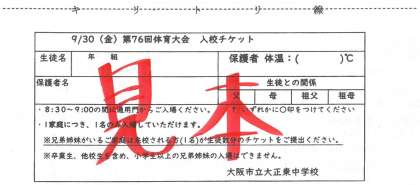 キリトリ線
9/30（金）第76回体育大会　入校チケット
生徒名　年　組　保護者 体温：(　　)℃
保護者名　生徒との関係
父　母　祖父　祖母
・8:30～9:00の間に通用門からご入場ください。　いずれかに〇印をつけてください
・1家庭につき、1名のみ入場していただけます。
※兄弟姉妹がいるご家庭は在校される方(1名)が生徒数分のチケットをご提出ください。
※卒業生、他校生を含め、小学生以上の兄弟姉妹の入場はできません。
大阪市立大正東中学校
見本